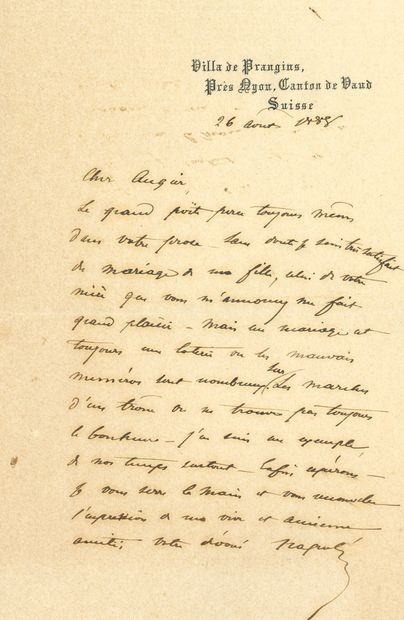 Villa de Prangins,
Près Nyon, Canton de Vaud
Suisse
26 août 1888
Cher Augier,
Le grand poëte perce toujours même
dans votre prose – Sans doute je suis très satisfait
du mariage de ma fille, celui de votre
nièce que vous m'annoncez me fait
grand plaisir – Mais un mariage est
toujours une loterie où les mauvais
numéros sont nombreux. Sur les marches
d'un trône on ne trouve pas toujours
le bonheur – j'en suis un exemple,
de nos temps surtout – Enfin espérons –
Je vous serre la main et vous renouvelle
l'expression de ma vive et ancienne
amitié, votre dévoué Napoléon